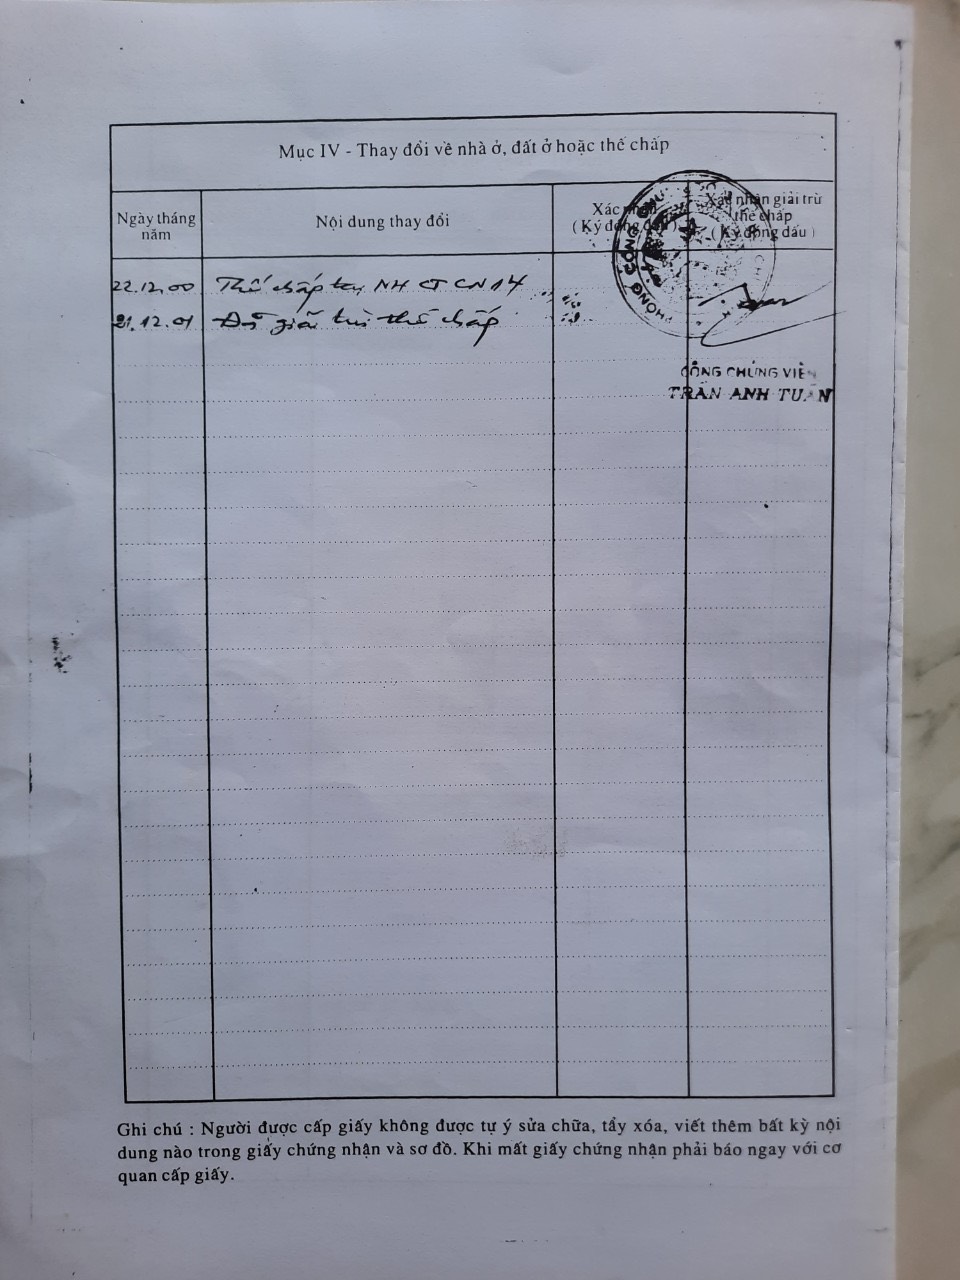 Mục IV - Thay đổi về nhà ở, đất ở hoặc thế chấp
Ngày tháng năm
Nội dung thay đổi
Xác nhận
( Ký đóng dấu )
Xác nhận giải trừ
thế chấp
( Ký đóng dấu )
22.12.00 Thế chấp tại NH CT CN 14
31.12.01 Đã giải trừ thế chấp
PHÒNG CÔNG CHỨNG
CÔNG CHỨNG VIÊN
TRẦN ANH TUẤN
Ghi chú : Người được cấp giấy không được tự ý sửa chữa, tẩy xóa, viết thêm bất kỳ nội
dung nào trong giấy chứng nhận và sơ đồ. Khi mất giấy chứng nhận phải báo ngay với cơ
quan cấp giấy.